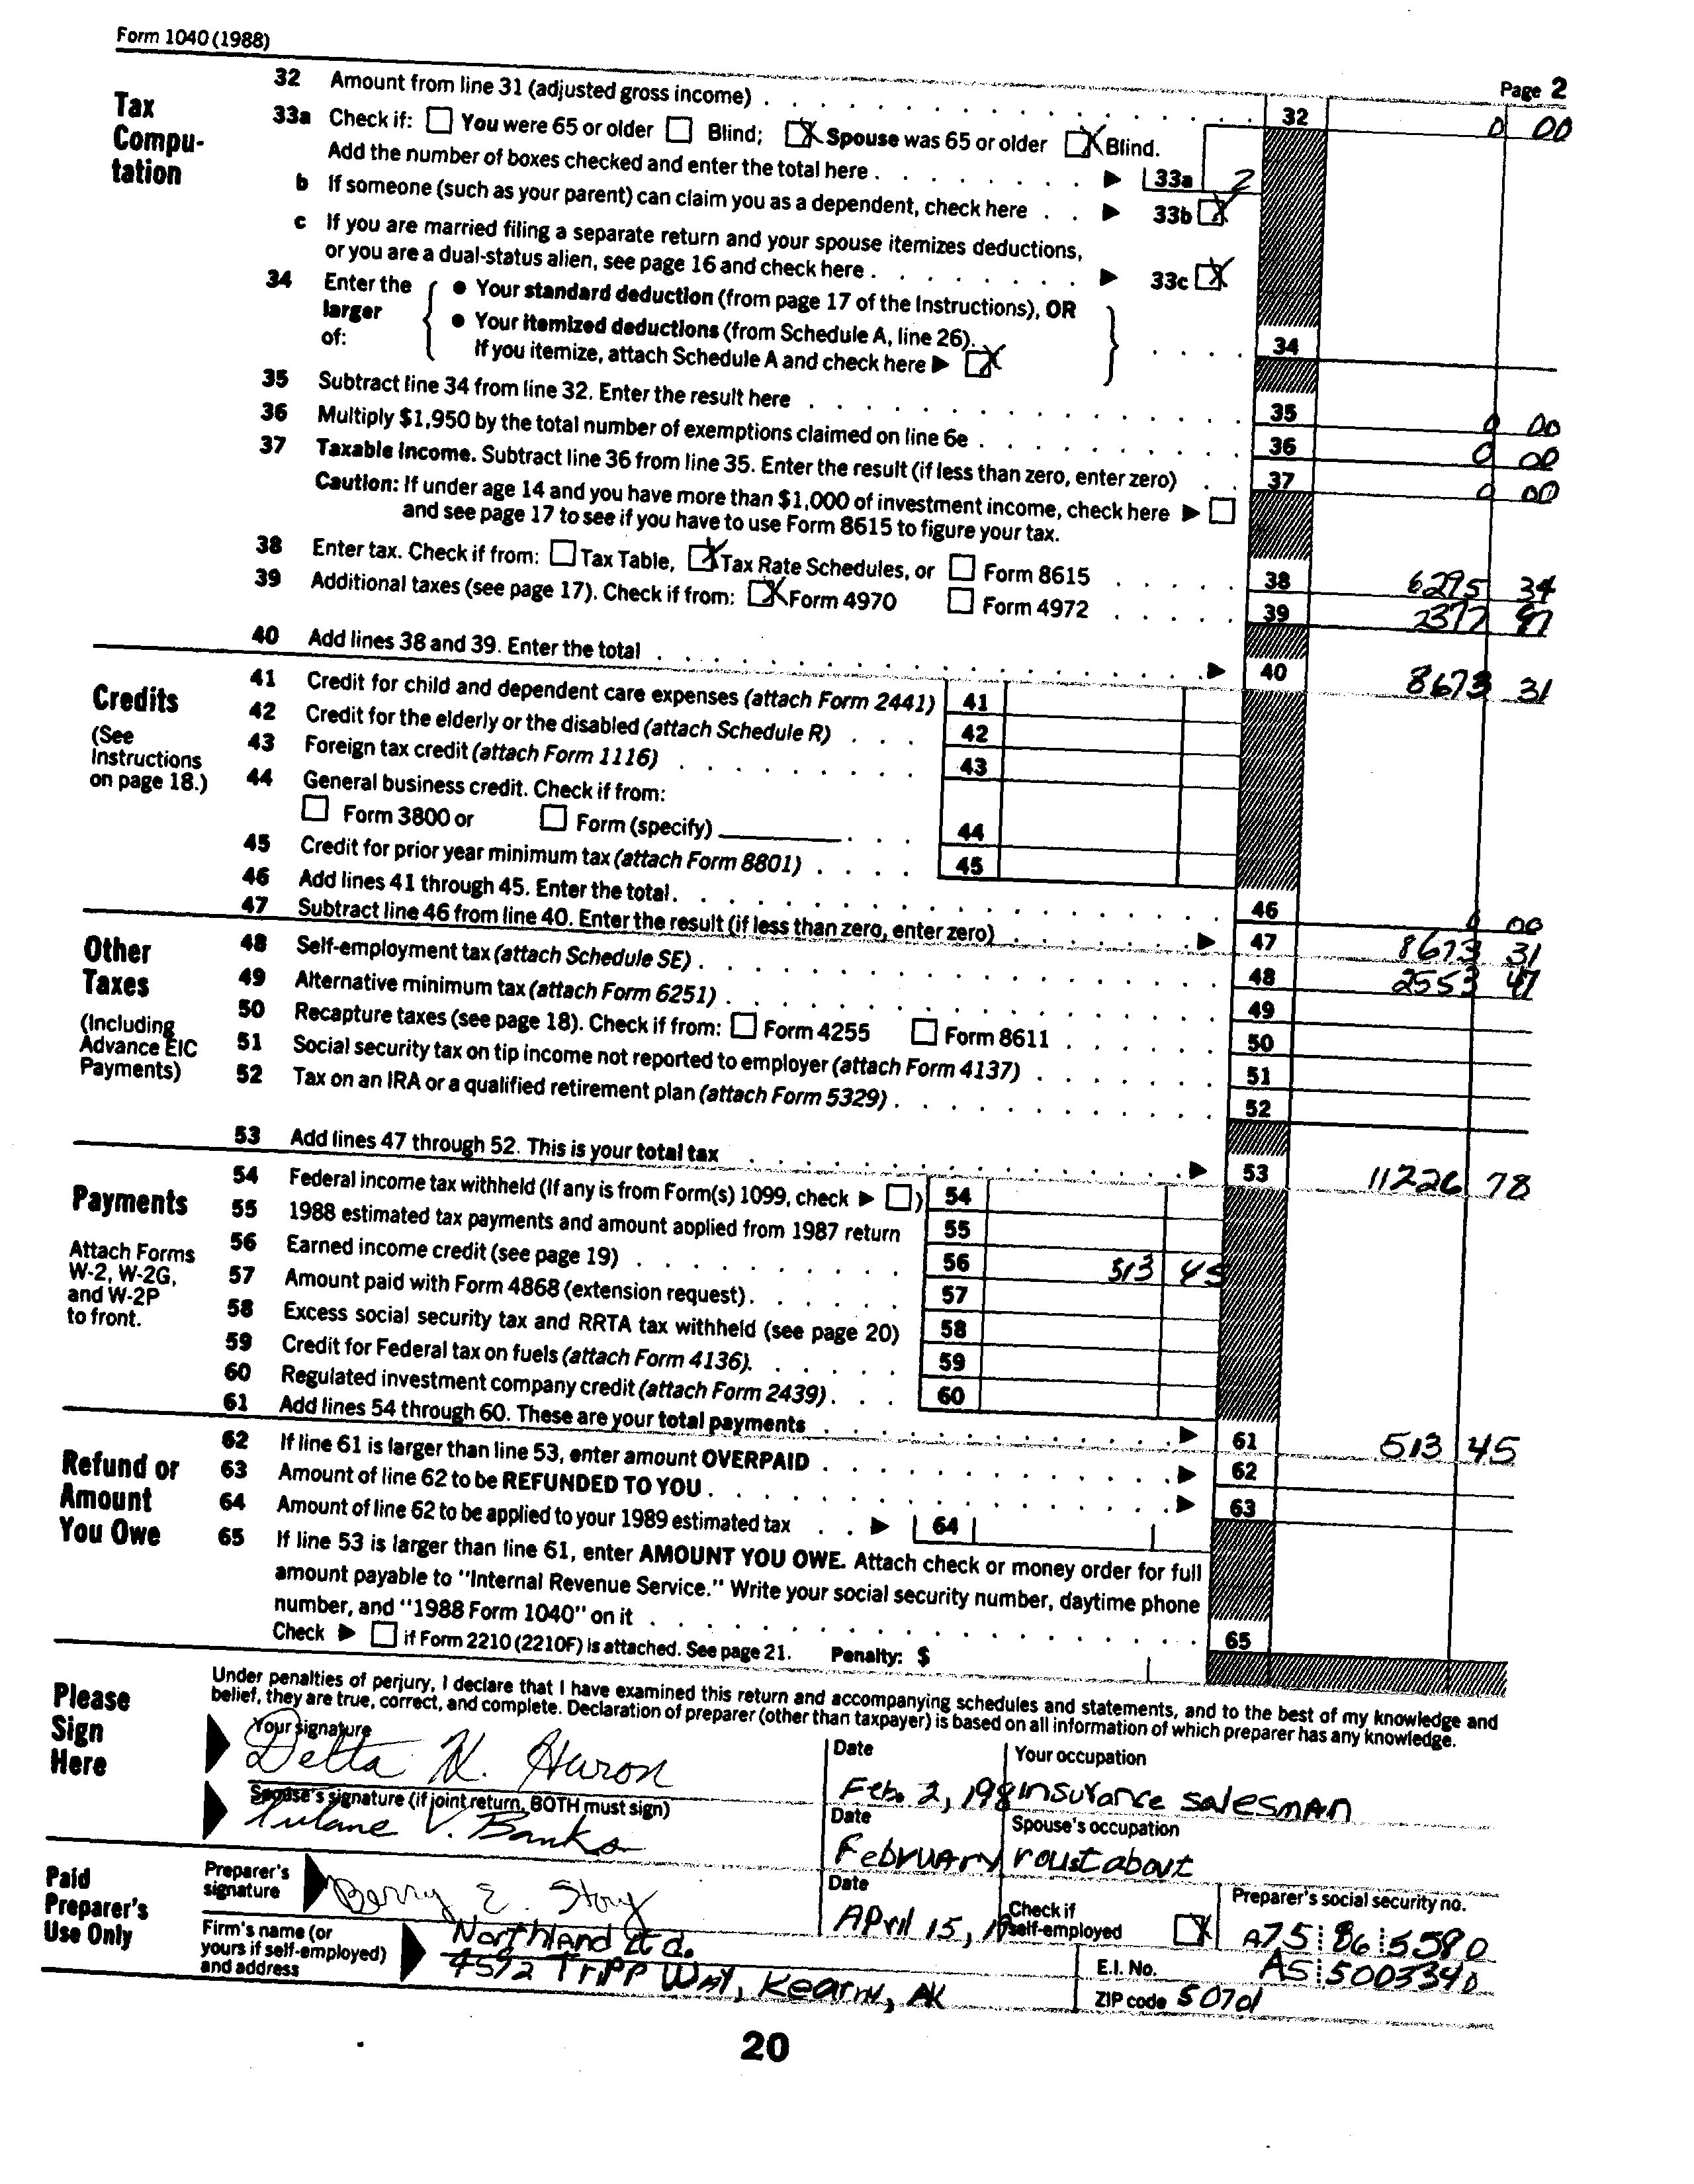 Form 1040 (1988)
Page 2
Tax Compu-tation
32 Amount from line 31 (adjusted gross income) . . . . 32 0 00
33a Check if: You were 65 or older Blind; X Spouse was 65 or older X Blind.
Add the number of boxes checked and enter the total here . . . . ▶ 33a 2
b If someone (such as your parent) can claim you as a dependent, check here . . ▶ 33b X
c If you are married filing a separate return and your spouse itemizes deductions,
or you are a dual-status alien, see page 16 and check here . . . . ▶ 33c X
34 Enter the larger of:
• Your standard deduction (from page 17 of the Instructions), OR
• Your itemized deductions (from Schedule A, line 26).
If you itemize, attach Schedule A and check here ▶ X . . . . 34
35 Subtract line 34 from line 32. Enter the result here . . . . 35 0 00
36 Multiply $1,950 by the total number of exemptions claimed on line 6e . . . . 36 0 00
37 Taxable income. Subtract line 36 from line 35. Enter the result (if less than zero, enter zero) . . 37 0 00
Caution: If under age 14 and you have more than $1,000 of investment income, check here ▶
and see page 17 to see if you have to use Form 8615 to figure your tax.
38 Enter tax. Check if from: Tax Table, X Tax Rate Schedules, or Form 8615 . . . . 38 6295 34
39 Additional taxes (see page 17). Check if from: X Form 4970 Form 4972 . . . . 39 2377 97
40 Add lines 38 and 39. Enter the total . . . . ▶ 40 8673 31
Credits
(See Instructions on page 18.)
41 Credit for child and dependent care expenses (attach Form 2441) 41
42 Credit for the elderly or the disabled (attach Schedule R) . . . 42
43 Foreign tax credit (attach Form 1116) . . . . 43
44 General business credit. Check if from:
Form 3800 or Form (specify) . . . 44
45 Credit for prior year minimum tax (attach Form 8801) . . . . 45
46 Add lines 41 through 45. Enter the total . . . . 46 0 00
47 Subtract line 46 from line 40. Enter the result (if less than zero, enter zero) . . . . ▶ 47 8673 31
Other Taxes
(Including Advance EIC Payments)
48 Self-employment tax (attach Schedule SE) . . . . 48 2553 47
49 Alternative minimum tax (attach Form 6251) . . . . 49
50 Recapture taxes (see page 18). Check if from: Form 4255 Form 8611 . . . . 50
51 Social security tax on tip income not reported to employer (attach Form 4137) . . . . 51
52 Tax on an IRA or a qualified retirement plan (attach Form 5329) . . . . 52
53 Add lines 47 through 52. This is your total tax . . . . ▶ 53 11226 78
Payments
Attach Forms W-2, W-2G, and W-2P to front.
54 Federal income tax withheld (If any is from Form(s) 1099, check ▶ ) 54
55 1988 estimated tax payments and amount applied from 1987 return 55
56 Earned income credit (see page 19) . . . . 56 513 45
57 Amount paid with Form 4868 (extension request) . . . . 57
58 Excess social security tax and RRTA tax withheld (see page 20) 58
59 Credit for Federal tax on fuels (attach Form 4136) . . . . 59
60 Regulated investment company credit (attach Form 2439) . . . 60
61 Add lines 54 through 60. These are your total payments . . . . ▶ 61 513 45
Refund or Amount You Owe
62 If line 61 is larger than line 53, enter amount OVERPAID . . . . ▶ 62
63 Amount of line 62 to be REFUNDED TO YOU . . . . ▶ 63
64 Amount of line 62 to be applied to your 1989 estimated tax . . ▶ 64
65 If line 53 is larger than line 61, enter AMOUNT YOU OWE. Attach check or money order for full
amount payable to "Internal Revenue Service." Write your social security number, daytime phone
number, and "1988 Form 1040" on it . . . . 65
Check ▶ if Form 2210 (2210F) is attached. See page 21. Penalty: $
Please Sign Here
Under penalties of perjury, I declare that I have examined this return and accompanying schedules and statements, and to the best of my knowledge and
belief, they are true, correct, and complete. Declaration of preparer (other than taxpayer) is based on all information of which preparer has any knowledge.
Your signature Date Your occupation
Delta N. Huron Feb. 2, 198 insurance salesman
Spouse's signature (if joint return, BOTH must sign) Date Spouse's occupation
Tulane V. Banks February roustabout
Paid Preparer's Use Only
Preparer's signature Date Check if self-employed Preparer's social security no.
Berry E. Story April 15, 19 X A75 86 5580
Firm's name (or yours if self-employed) and address
Northland Ltd. E.I. No. AS 5003340
4592 Tripp Way, Kearny, AK ZIP code 50701
20